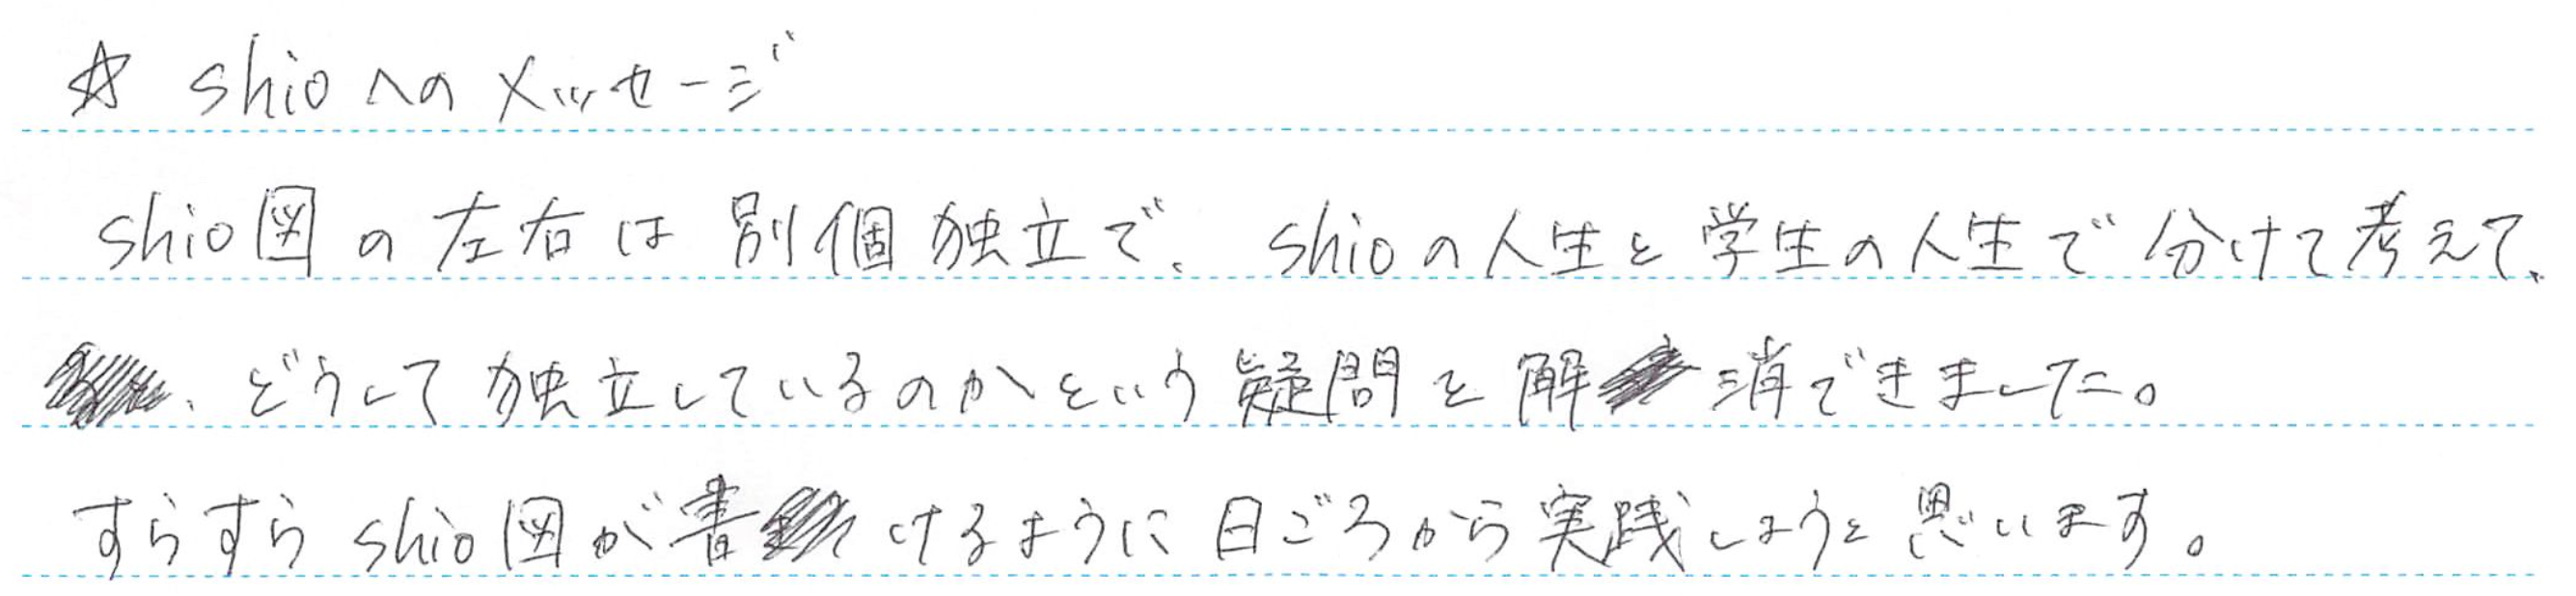 ☆ shioへのメッセージ
shio図の左右は別個独立で、shioの人生と学生の人生で分けて考えて、
、どうして独立しているのかという疑問を解消できました。
すらすらshio図が書けるように日ごろから実践しようと思います。